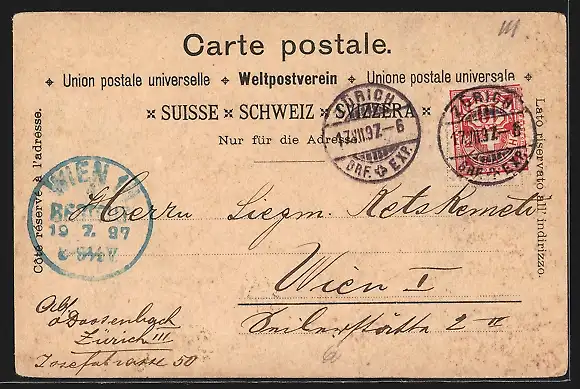 Carte postale.
Union postale universelle ✦ Weltpostverein ✦ Unione postale universale
SUISSE × SCHWEIZ × SVIZZERA
Nur für die Adresse.
Côté réservé à l'adresse.
Lato riservato all' indirizzo.
ZÜRICH
17.VII.97.-6
BRF. EXP.
ZÜRICH
17.VII.97.-6
BRF. EXP.
WIEN
19 7. 97
Herrn Siegm. Ketskemeti
Wien I
Seilerstätte 2 II
Abs.
Dossenbach
Zürich III
Josefstrasse 50